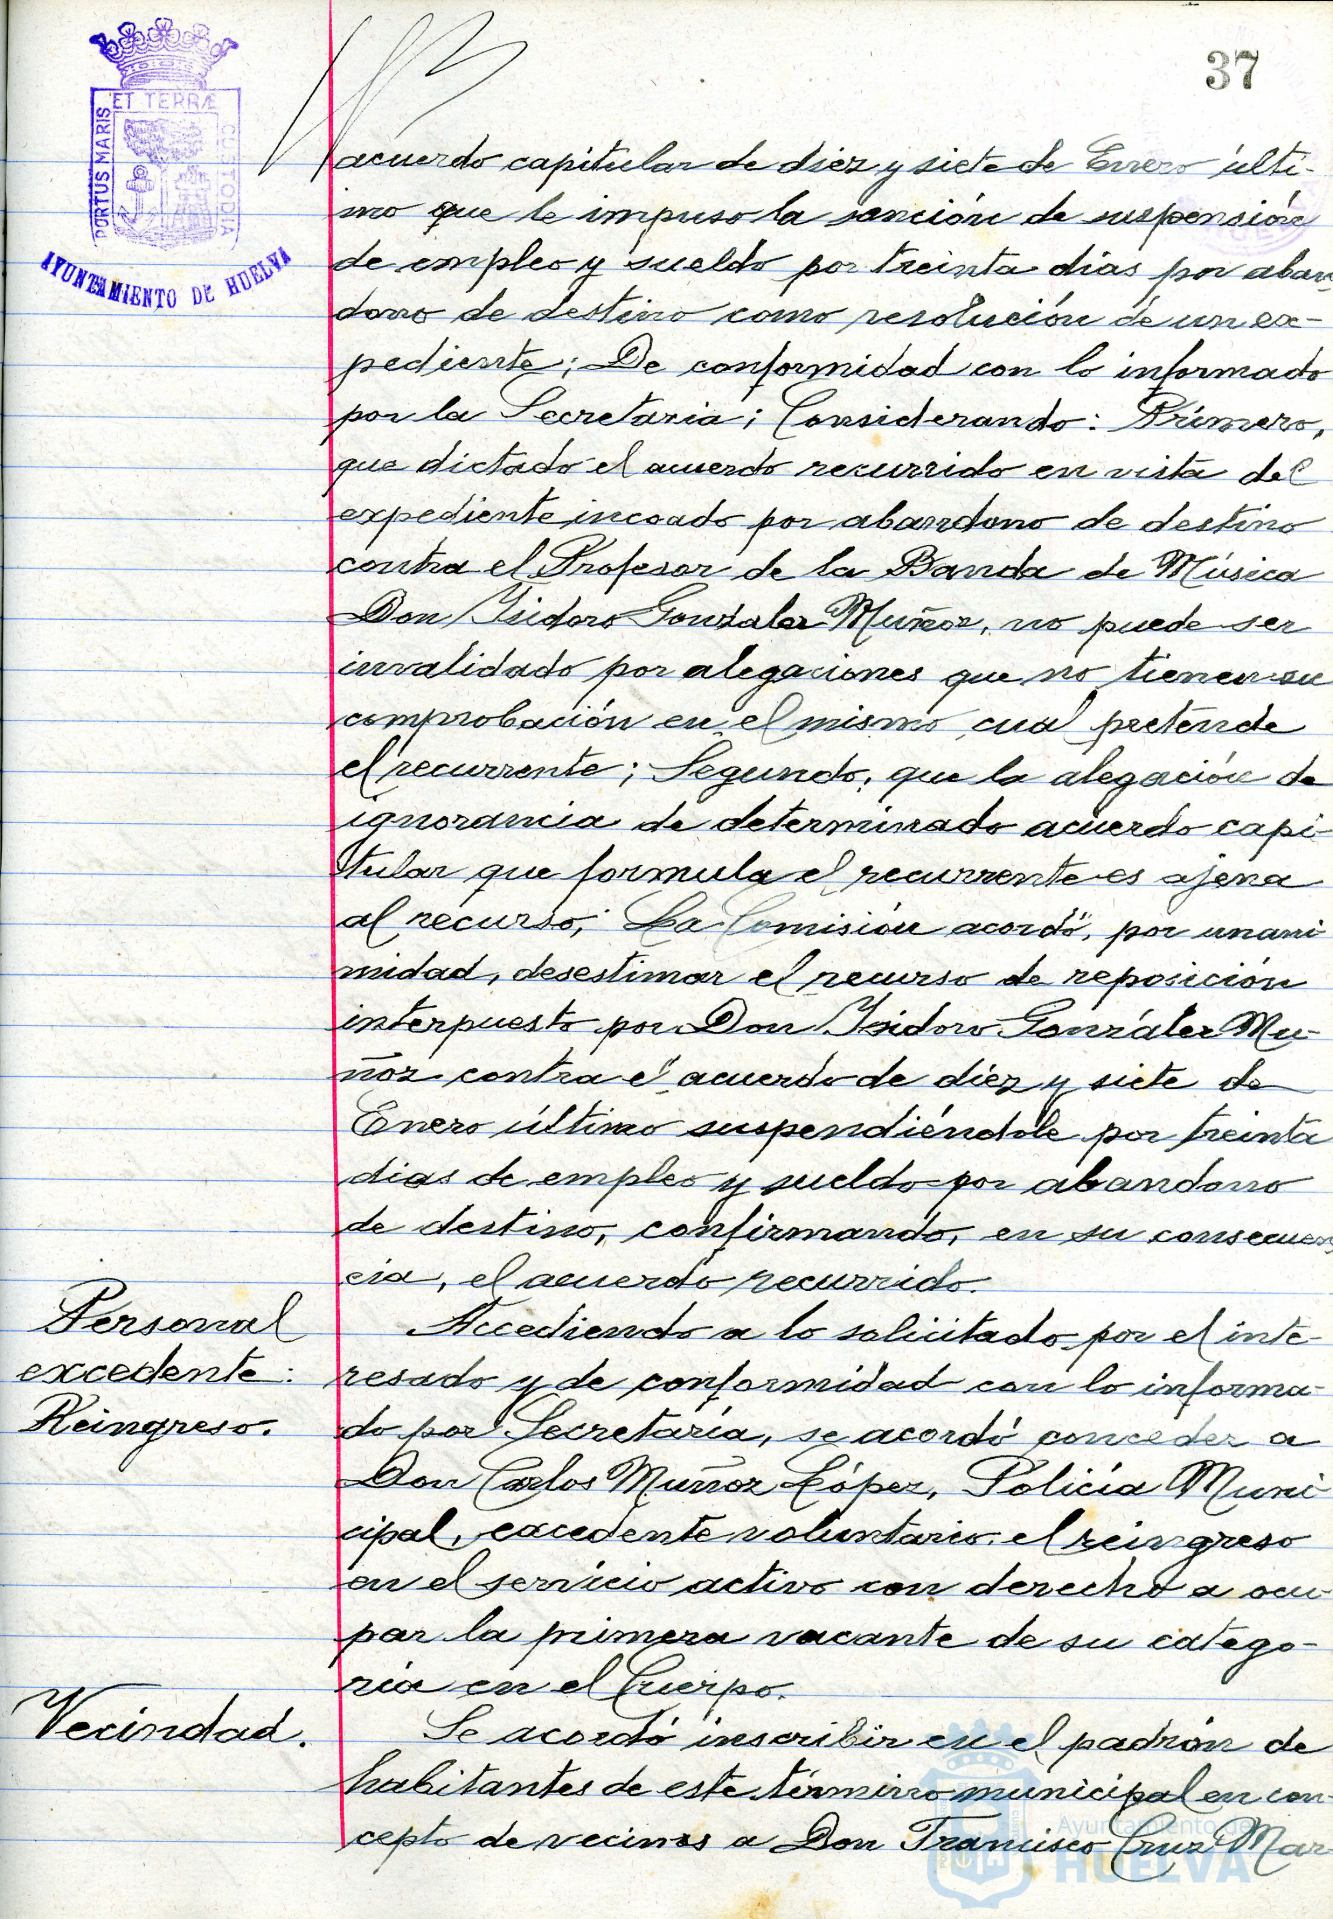 37
PORTUS MARIS
ET TERRÆ
CUSTODIA
AYUNTAMIENTO DE HUELVA
acuerdo capitular de diez y siete de Enero últi-
mo que le impuso la sanción de suspensión
de empleo y sueldo por treinta dias por aban
dono de destino como resolución de un ex-
pediente; De conformidad con lo informado
por la Secretaria; Considerando: Primero,
que dictado el acuerdo recurrido en vista del
expediente incoado por abandono de destino
contra el Profesor de la Banda de Música
Don Isidoro Gonzalez Muñoz, no puede ser
invalidado por alegaciones que no tienen su
comprobación en el mismo cual pretende
el recurrente; Segundo, que la alegación de
ignorancia de determinado acuerdo capi-
tular que formula el recurrente es ajena
al recurso; La Comisión acordó, por unani
midad, desestimar el recurso de reposición
interpuesto por Don Isidoro González Mu-
ñoz contra el acuerdo de diez y siete de
Enero último suspendiéndole por treinta
dias de empleo y sueldo por abandono
de destino, confirmando, en su consecuen
cia, el acuerdo recurrido.
Personal
excedente:
Reingreso.
Accediendo a lo solicitado por el inte-
resado y de conformidad con lo informa-
do por Secretaría, se acordó conceder a
Don Carlos Muñoz López, Policía Muni
cipal, excedente voluntario, el reingreso
en el servicio activo con derecho a ocu-
par la primera vacante de su catego-
ría en el Cuerpo.
Vecindad.
Se acordó inscribir en el padrón de
habitantes de este término municipal en con-
cepto de vecinos a Don Francisco Cruz Mar-
Ayuntamiento de
HUELVA